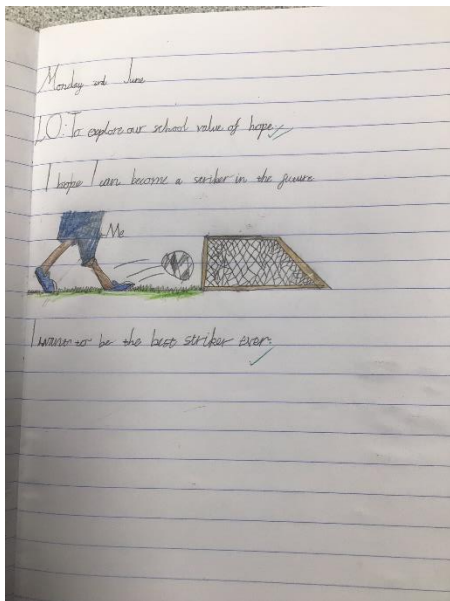 Monday 2nd June
LO: To explore our school value of hope
I hope I can become a striker in the future
Me
I want to be the best striker ever.